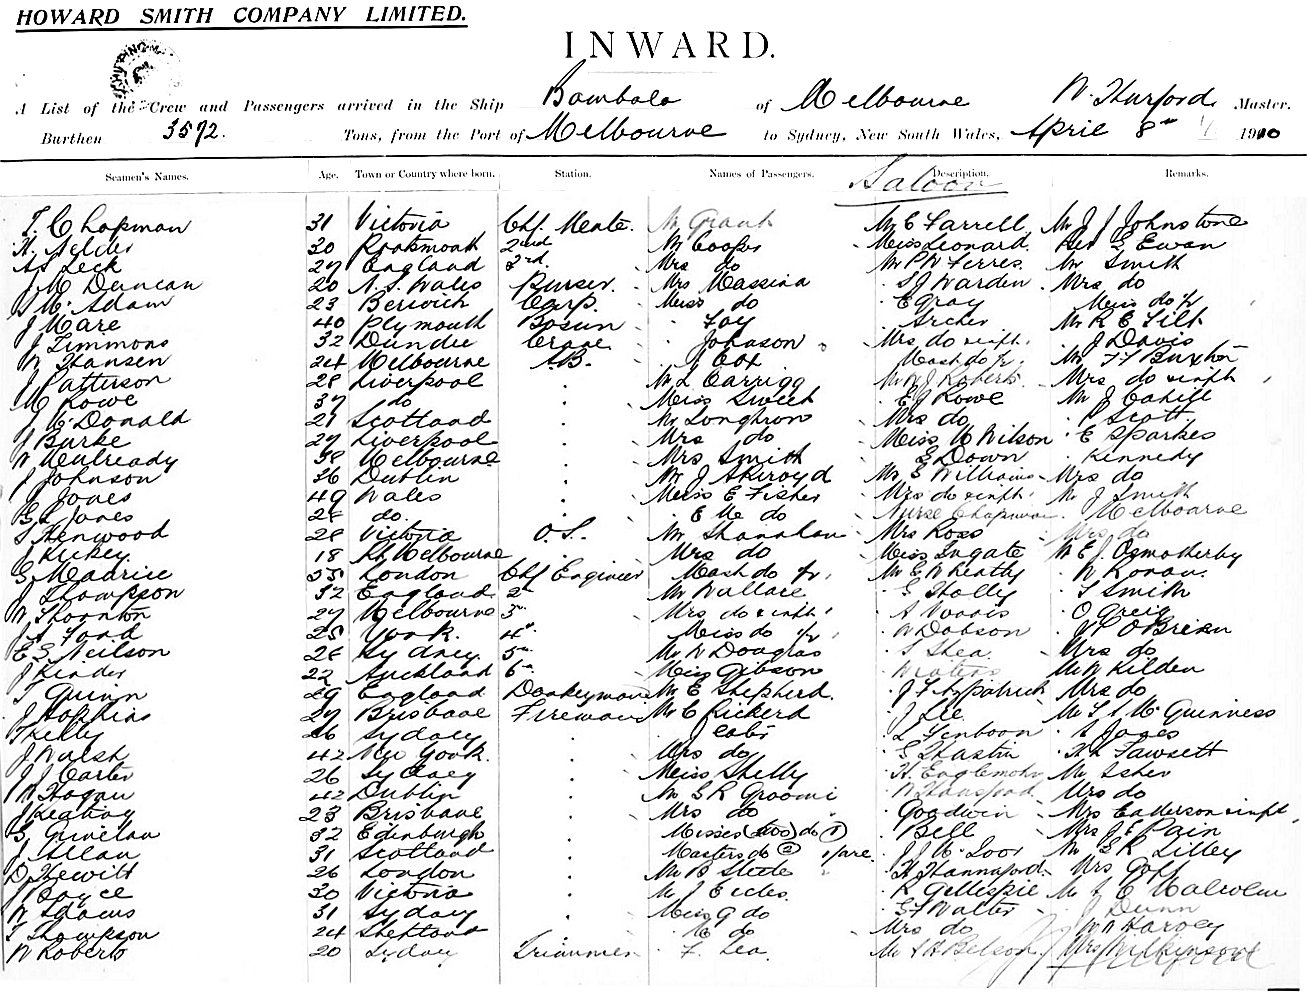 HOWARD SMITH COMPANY LIMITED.
INWARD.
A List of the Crew and Passengers arrived in the Ship Bombala of Melbourne W. Hurford Master.
Burthen 3572. Tons, from the Port of Melbourne to Sydney, New South Wales, April 8th 1910
Seamen's Names. Age. Town or Country where born. Station. Names of Passengers. Description. Remarks.
Saloon
T. Chapman 31 Victoria Chf. Mate. Mr Grant Mr C Farrell Mr J J Johnstone
30 2nd Mr Cooper Miss Leonard Rev G Ewan
A Leck 27 England 3rd. Mrs do Mr P W Ferres. Mr Smith
J Mc Duncan 20 N.S. Wales Purser. Mrs Massina S J Warden Mrs do
D Mc Adam 23 Berwick Carp. Miss do E Gray Miss do
J Mare 40 Plymouth Bosun Foy Archer Mr R E Tilt
J Timmons 32 Dundee Johnson Mrs do inft. J Davis
W Hansen 24 Melbourne A.B. J Cox Mast do Mr F F Buxton
J Patterson 28 Liverpool Mr L Carrigg Mr W J Roberts Mrs do infth
M Rowe 37 do Miss Sweet E J Rowe Mr J Cahill
J McDonald 21 Scotland Mr Loughron Mrs do Scott
J Burke 27 Liverpool Mrs do Miss M Wilson E Sparkes
W Mulready 38 Melbourne Mrs Smith G Down Kennedy
J Johnson 36 Dublin Mr J Akeroyd Mr E Williams Mrs do
J Jones 49 Wales Miss E Fisher Mrs do infth Mr J Smith
G L Jones 28 do. E Mc do Nurse Chapman Melbourne
T Henwood 28 Victoria O.S. Mr Shanahan Mrs Ross Mrs do
J Hickey 18 Pt Melbourne Mrs do Miss Ingate Mr E J Osmotherby
G Madrice 35 London Chf Engineer Mast do Mr E Wheatly W Ronan.
J Thompson 32 England 2nd Mr Wallace G Holly T Smith
W Thornton 27 Melbourne 3rd Mrs do infth A Voosis O Greig
Ford 25 York. 4th Miss do A Dobson J P O'Brien
E G Neilson 28 Sydney 5th Mr W Douglas S Shea Mrs do
J Kinder 22 Auckland 6th Miss Gibson Waters Mr W Kilden
T Quinn 29 England Donkeyman Mr E Shepherd. J Fitzpatrick Mrs do
J Hopkins 27 Brisbane Fireman Mr C Rickerd J Lee Mr McGuinness
T Kelly 26 Sydney J L Fenboon S Jones
J Walsh 42 New York. Mrs do G Hastin Fawsett
J J Carter 26 Sydney Miss Shelly H Englemohr Mr Isher
W Hogan 42 Dublin Mr G R Groomi W Mrs do
J Leahay 23 Brisbane Mrs do Goodwin Mrs infth
G Quinlan 32 Edinburgh Misses (two) do Bell Mrs J F Pain
J Allan 31 Scotland Masters do (2) J J McLoor Mr G R Lilley
D Hewitt 26 London Mr B Steele H Hannaford Mrs Goff
J Boyce 30 Victoria Mr J Eccles. R Gillespie Mr C Malcolm
W Adams 31 Sydney Miss G do G F Walter J Dunn
T Thompson 24 Shetland do Mrs do W A Harvey
W Roberts 20 Sydney Trimmer F. Lea. Mr A Belson Mrs Wilkinson